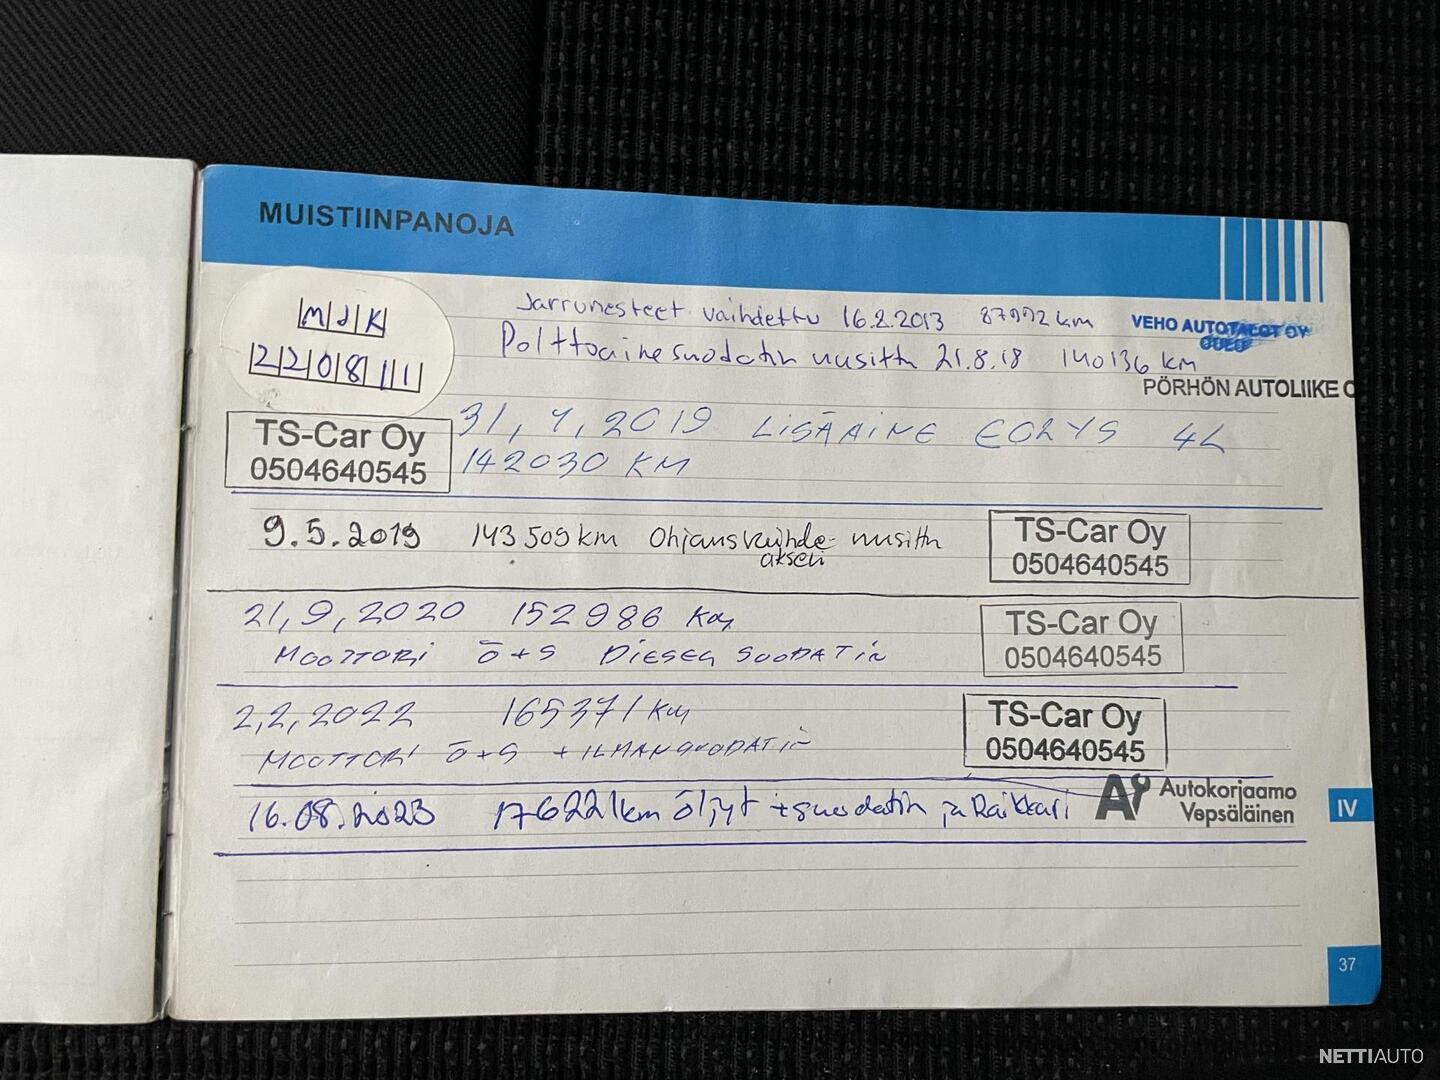 MUISTIINPANOJA
MJK
220811
Jarrunesteet vaihdettu 16.2.2013 87992 km
VEHO AUTOTALOT OY
OULU
Polttoainesuodatin uusittu 21.8.18 140136 km
PÖRHÖN AUTOLIIKE O
TS-Car Oy
0504640545
31, 1, 2019 LISÄAINE EOLYS 4L
142030 KM
9.5.2019 143509 km Ohjausvaihde- uusittu
akseli
TS-Car Oy
0504640545
21,9,2020 152986 Km
MOOTTORI Ö+S DIESEL SUODATIN
TS-Car Oy
0504640545
2,2,2022 165371 KM
MOOTTORI Ö+S + ILMANSUODATIN
TS-Car Oy
0504640545
16.08.2023 176221km öljyt +suodatin ja Raikkari
Autokorjaamo
Vepsäläinen
IV
37
NETTIAUTO